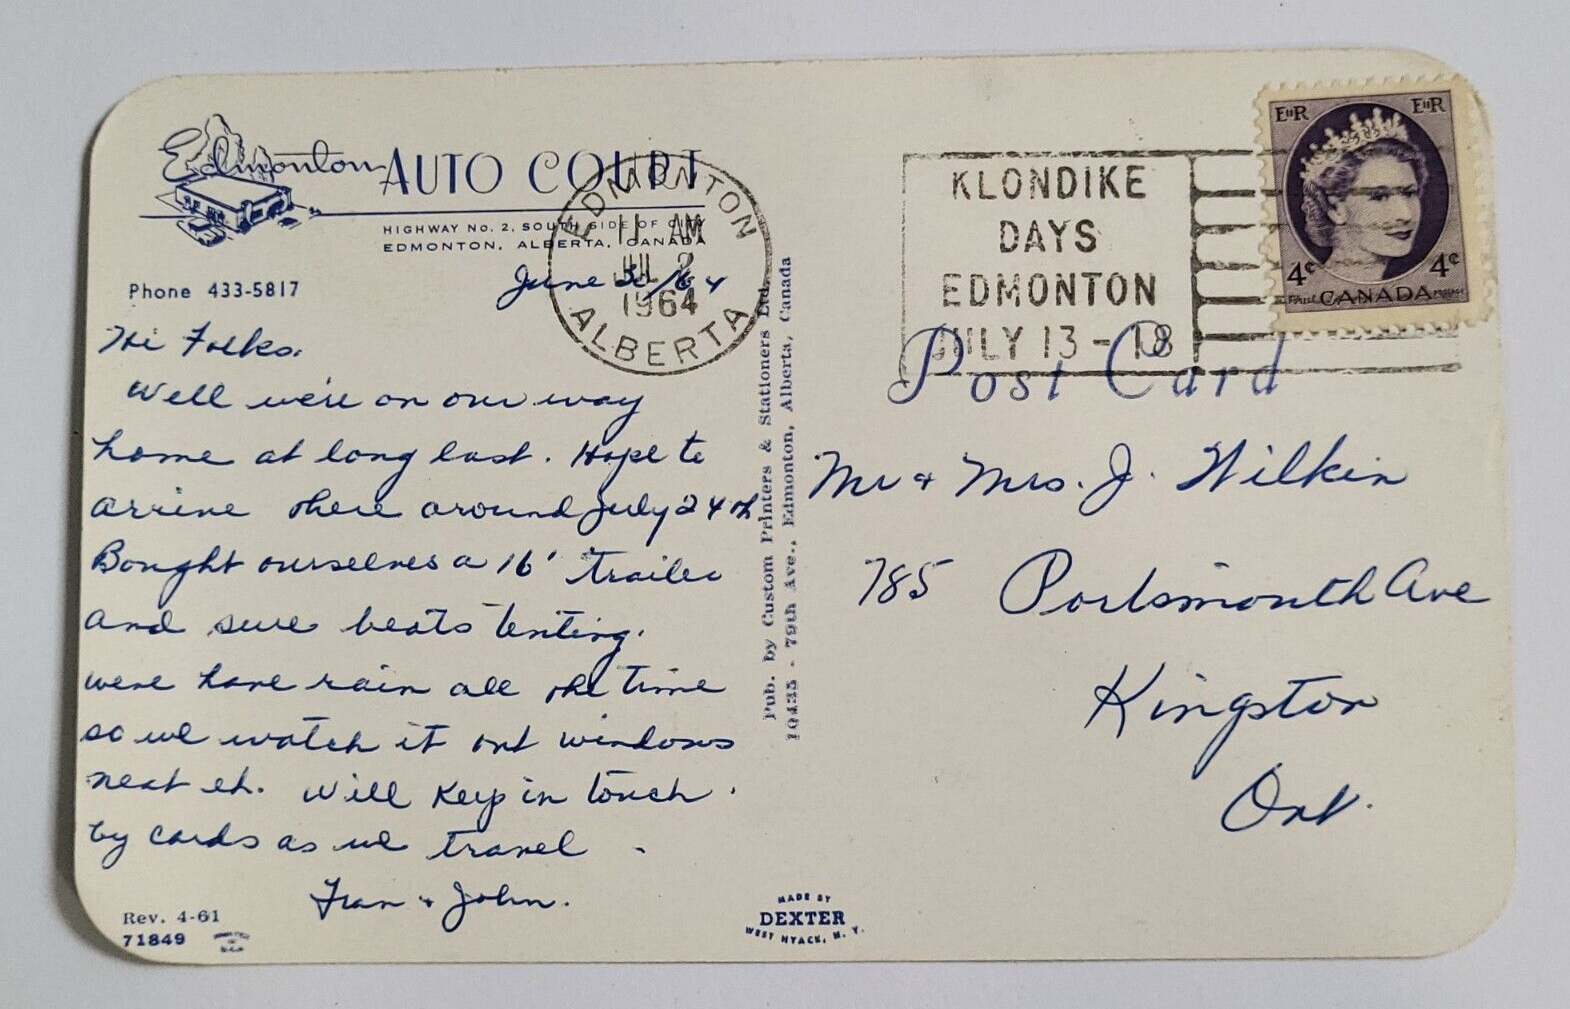 Edmonton AUTO COURT
HIGHWAY No. 2, SOUTH SIDE OF CITY
EDMONTON, ALBERTA, CANADA
Phone 433-5817
June 30/64
EDMONTON
11 AM
JUL 2
1964
ALBERTA
Hi Folks.
Well we're on our way
home at long last. Hope to
arrive there around July 24th
Bought ourselves a 16' trailer
and sure beats tenting.
were have rain all the time
so we watch it out windows
neat eh. Will keep in touch.
by cards as we travel.
Fran + John.
Rev. 4-61
71849
Pub. by Custom Printers & Stationers Ltd.
10435 - 79th Ave., Edmonton, Alberta, Canada
MADE BY
DEXTER
WEST NYACK, N. Y.
KLONDIKE
DAYS
EDMONTON
JULY 13 - 18
EIIR EIIR
4¢ 4¢
POSTES CANADA POSTAGE
Post Card
Mr + Mrs. J. Wilkin
785 Portsmouth Ave
Kingston
Ont.